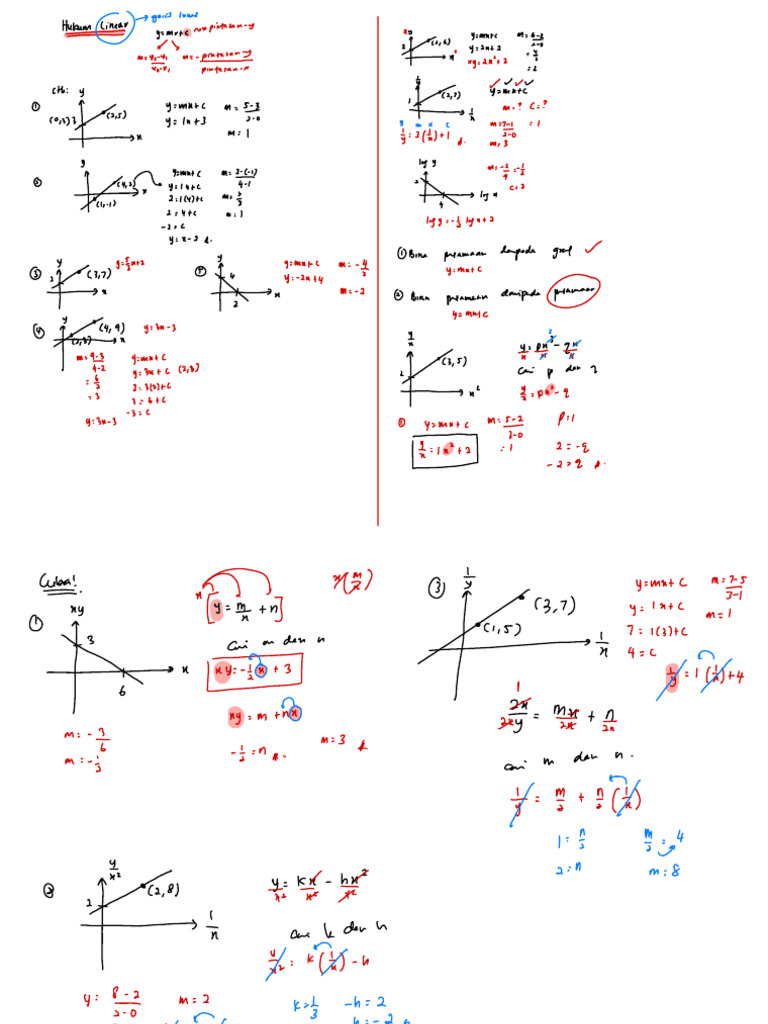 Hukum Linear → garis lurus
y = mx + c → pintasan-y
m = y₂-y₁ / x₂-x₁
m = - pintasan-y / pintasan-x
cth:
①
y
(0,3) 3
(2,5)
x
y = mx + c
y = 1x + 3
m = 5-3 / 2-0
m = 1
②
y
(4,2)
(1,-1)
x
y = mx + c
y = 1x + c
2 = 1(4) + c
2 = 4 + c
-2 = c
y = x - 2
m = 2-(-1) / 4-1
m = 3/3
m = 1
③
y
2
(3,7)
x
y = 5/3 x + 2
④
y
4
2
x
y = mx + c
y = -2x + 4
m = -4/2
m = -2
④
y
(4,9)
(2,3)
x
y = 3x - 3
m = 9-3 / 4-2
= 6/2
= 3
y = 3x - 3
y = mx + c
y = 3x + c (2,3)
3 = 3(2) + c
3 = 6 + c
-3 = c
xy
2
(2,6)
x²
y = mx + c
y = 2x + 2
xy = 2x² + 2
m = 6-2 / 2-0
= 4/2
= 2
1/y
1
(2,7)
1/x
y = mx + c
m = ? c = ?
m = 7-1 / 2-0 = 1
m = 3
y m x c
1/y = 3(1/x) + 1
log y
2
4
log x
m = -2/4 = -1/2
c = 2
log y = -1/2 log x + 2
① Bina persamaan daripada graf ✓
y = mx + c
② Bina persamaan daripada persamaan
y = mx + c
y/x
2
(3,5)
x²
y/x = px³/x - qx/x
cari p dan q
y/x = px² - q
①
y = mx + c
y/x = 1x² + 2
m = 5-2 / 3-0
= 1
p = 1
2 = -q
-2 = q
Cuba!
①
xy
3
6
x
x [y = m/x + n]
x(m/x)
cari m dan n
xy = -1/2 x + 3
xy = m + nx
-1/2 = n
m = 3
m = -3/6
m = -1/2
③
1/y
(3,7)
(1,5)
1/x
y = mx + c
y = 1x + c
7 = 1(3) + c
4 = c
m = 7-5 / 3-1
m = 1
1/y = 1(1/x) + 4
1
2x/2xy = mx/2x + n/2x
cari m dan n.
1/y = m/2 + n/2 (1/x)
1 = n/2
2 = n
m/2 = 4
m = 8
②
y/x²
2
(2,8)
1/x
y/x² = kx/x² - hx²/x²
cari k dan h
y/x² = k(1/x) - h
y = 8-2 / 2-0
m = 2
k = 1/3
-h = 2
h = -2